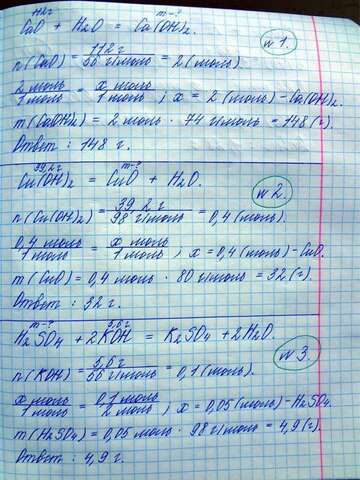 112г m-?
CaO + H₂O = Ca(OH)₂.
№1.
n(CaO) = 112 г / 56 г/моль = 2 (моль).
2 моль / 1 моль = x моль / 1 моль ; x = 2 (моль) - Ca(OH)₂.
m(Ca(OH)₂) = 2 моль · 74 г/моль = 148 (г).
Ответ : 148 г.
39,2г m-?
Cu(OH)₂ = CuO + H₂O.
№2.
n(Cu(OH)₂) = 39,2 г / 98 г/моль = 0,4 (моль).
0,4 моль / 1 моль = x моль / 1 моль ; x = 0,4 (моль) - CuO.
m(CuO) = 0,4 моль · 80 г/моль = 32 (г).
Ответ : 32 г.
m-? 5,6г
H₂SO₄ + 2KOH = K₂SO₄ + 2H₂O.
№3.
n(KOH) = 5,6 г / 56 г/моль = 0,1 (моль).
x моль / 1 моль = 0,1 моль / 2 моль ; x = 0,05 (моль) - H₂SO₄.
m(H₂SO₄) = 0,05 моль · 98 г/моль = 4,9 (г).
Ответ : 4,9 г.